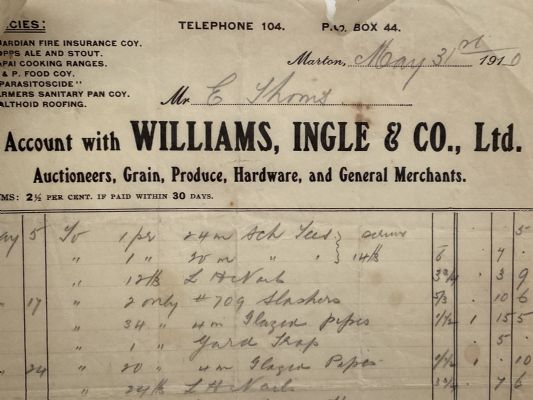 CIES:
TELEPHONE 104. P.O. BOX 44.
ARDIAN FIRE INSURANCE COY.
OPPS ALE AND STOUT.
APAI COOKING RANGES.
& P. FOOD COY.
PARASITOSCIDE"
ARMERS SANITARY PAN COY.
ALTHOID ROOFING.
Marton, May 31st 1910
Mr E Thoms
Account with WILLIAMS, INGLE & CO., Ltd.
Auctioneers, Grain, Produce, Hardware, and General Merchants.
MS: 2½ PER CENT. IF PAID WITHIN 30 DAYS.
ay 5 To 1 pr 24 in Tees 5
" 1 " 20 in " " 14 lb 6 7
" 12 lb L H Nails 3¾ 3 9
" 17 " 2 only #709 Slashers 5/3 10 6
" 34 " 4 in Glazed Pipes 1 15 5
" 1 " Yard Trap 5
" 24 " 20 " 4 in Glazed Pipes 1 10
" 24 lb L H Nails 3¾ 7 6